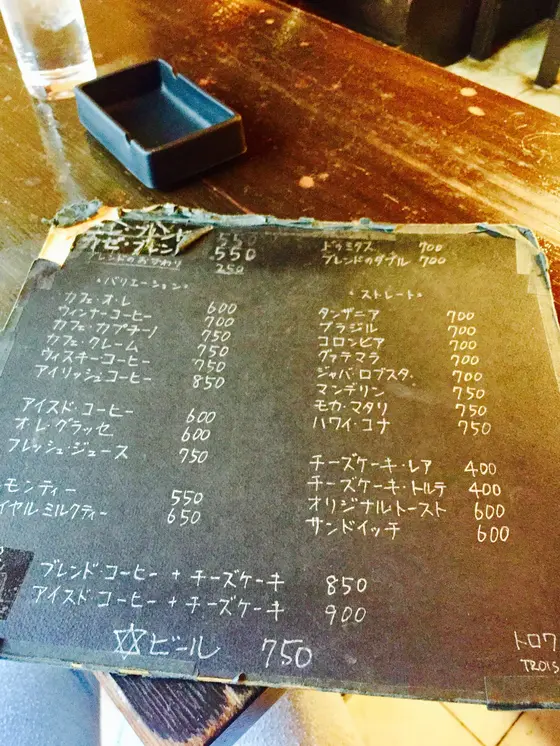 カゼ・ブレンド 550
ブレンドのおかわり 250
ドゥミタス 700
ブレンドのダブル 700
・バリエーション・
カフェ・オ・レ 600
ウィンナーコーヒー 700
カフェ・カプチーノ 750
カフェ・クレーム 750
ウィスキーコーヒー 750
アイリッシュコーヒー 850
アイスド・コーヒー 600
オ・レ・グラッセ 600
フレッシュ・ジュース 750
モンティー 550
イヤルミルクティー 650
・ストレート・
タンザニア 700
ブラジル 700
コロンビア 700
グァテマラ 700
ジャバ・ロブスタ 700
マンデリン 750
モカ・マタリ 750
ハワイ・コナ 750
チーズケーキ・レア 400
チーズケーキ・トルテ 400
オリジナルトースト 600
サンドイッチ 600
ブレンド・コーヒー + チーズケーキ 850
アイスド・コーヒー + チーズケーキ 900
☆ビール 750
トロワ
TROIS